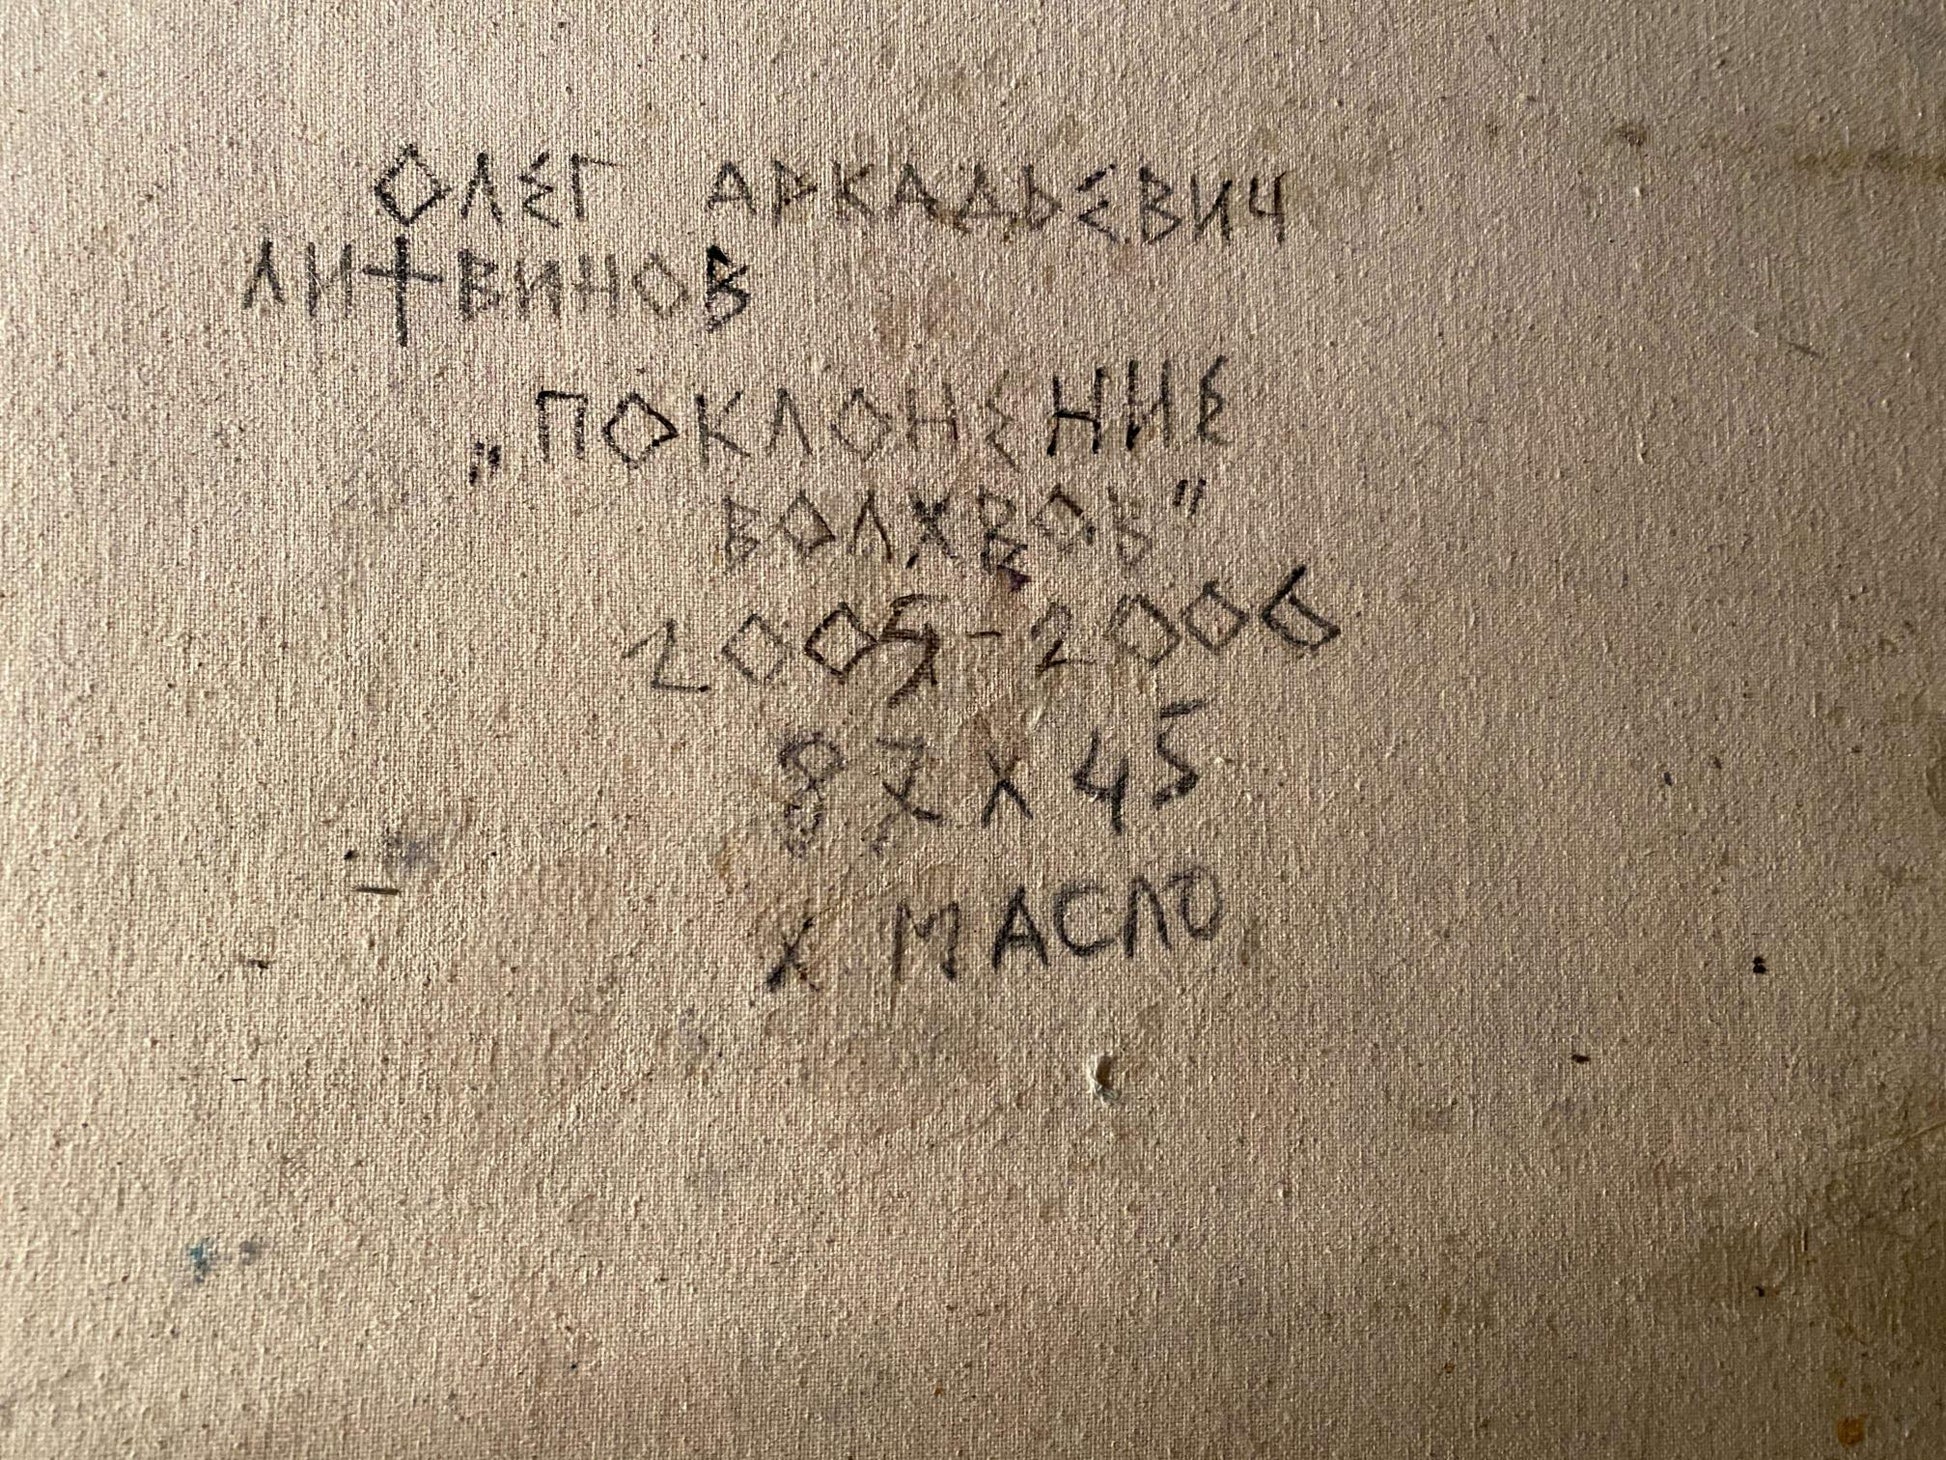 ОЛЕГ АРКАДЬЕВИЧ
ЛИТВИНОВ
„ПОКЛОНЕНИЕ
ВОЛХВОВ"
2005-2006
87 X 45
X МАСЛО